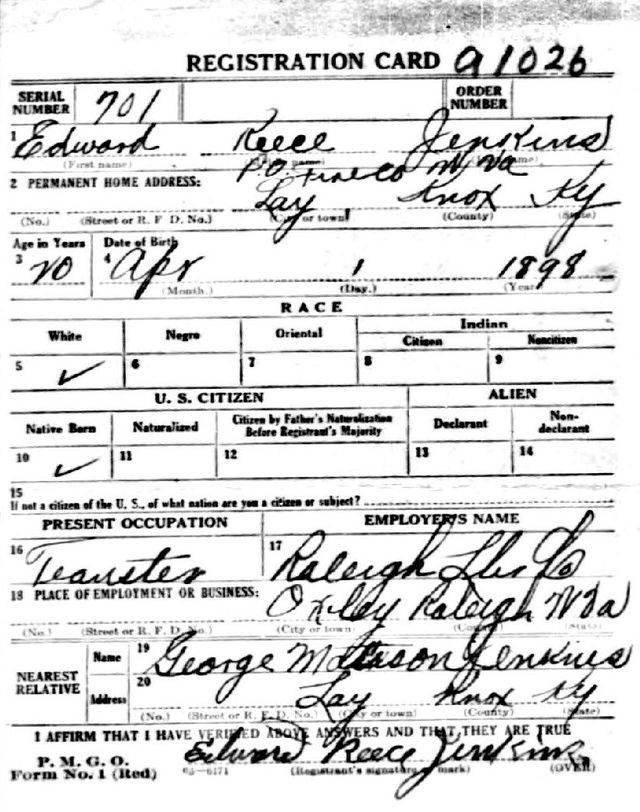 REGISTRATION CARD a1026
SERIAL NUMBER 701 ORDER NUMBER
1 Edward Reece Jenkins
(First name) name)
P.O. W Va
2 PERMANENT HOME ADDRESS:
Lay Knox Ky
(No.) (Street or R. F. D. No.) (City or town) (County) (State)
Age in Years Date of Birth
3 20 4 Apr 1 1898
(Month.) (Day.) (Year
RACE
White Negro Oriental Indian
Citizen Noncitizen
5 ✓ 6 7 8 9
U. S. CITIZEN ALIEN
Native Born Naturalized Citizen by Father's Naturalization Before Registrant's Majority Declarant Non-declarant
10 ✓ 11 12 13 14
15
If not a citizen of the U. S., of what nation are you a citizen or subject?
PRESENT OCCUPATION EMPLOYER'S NAME
16 Teamster 17 Raleigh Lbr Co
18 PLACE OF EMPLOYMENT OR BUSINESS:
Oxley Raleigh W Va
(No.) (Street or R. F. D. No.) (City or town) (County) (State)
NEAREST RELATIVE
Name 19 George Jenkins
Address 20 Lay Knox Ky
(No.) (Street or R. F. D. No.) (City or town) (County) (State)
I AFFIRM THAT I HAVE VERIFIED ABOVE ANSWERS AND THAT THEY ARE TRUE
P. M. G. O.
Form No. 1 (Red) 03-6171 Edward Reece Jenkins
(Registrant's signature or mark) (OVER)